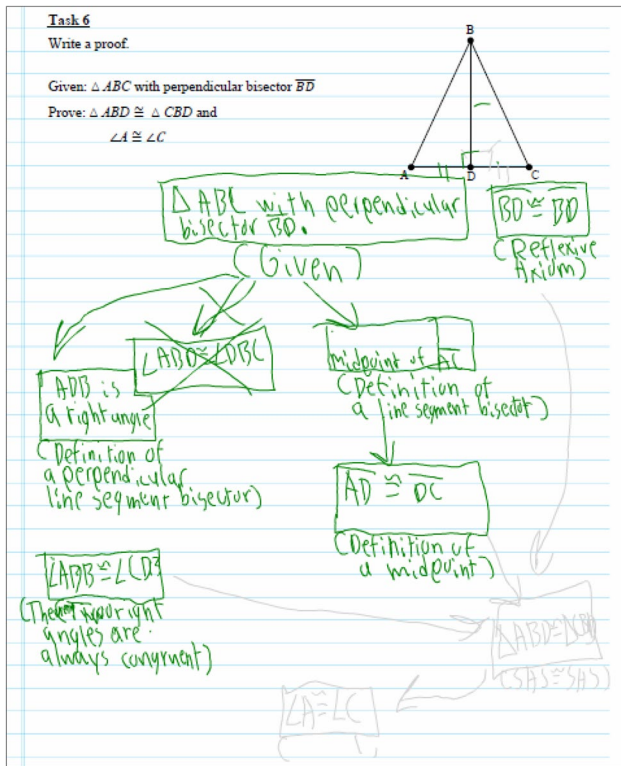 Task 6
Write a proof.
Given: △ ABC with perpendicular bisector BD
Prove: △ ABD ≅ △ CBD and
∠A ≅ ∠C
B
A
D
C
△ABC with perpendicular
bisector BD.
(Given)
BD ≅ BD
(Reflexive
Axium)
∠ABD≅∠DBC
ADB is
a right angle
(Definition of
a perpendicular
line segment bisector)
midpoint of AC
(Definition of
a line segment bisector)
AD ≅ DC
(Definition of
a midpoint)
∠ADB≅∠CDB
right
angles are
always congruent)
△ABD≅△CBD
(SAS≅SAS)
∠A≅∠C